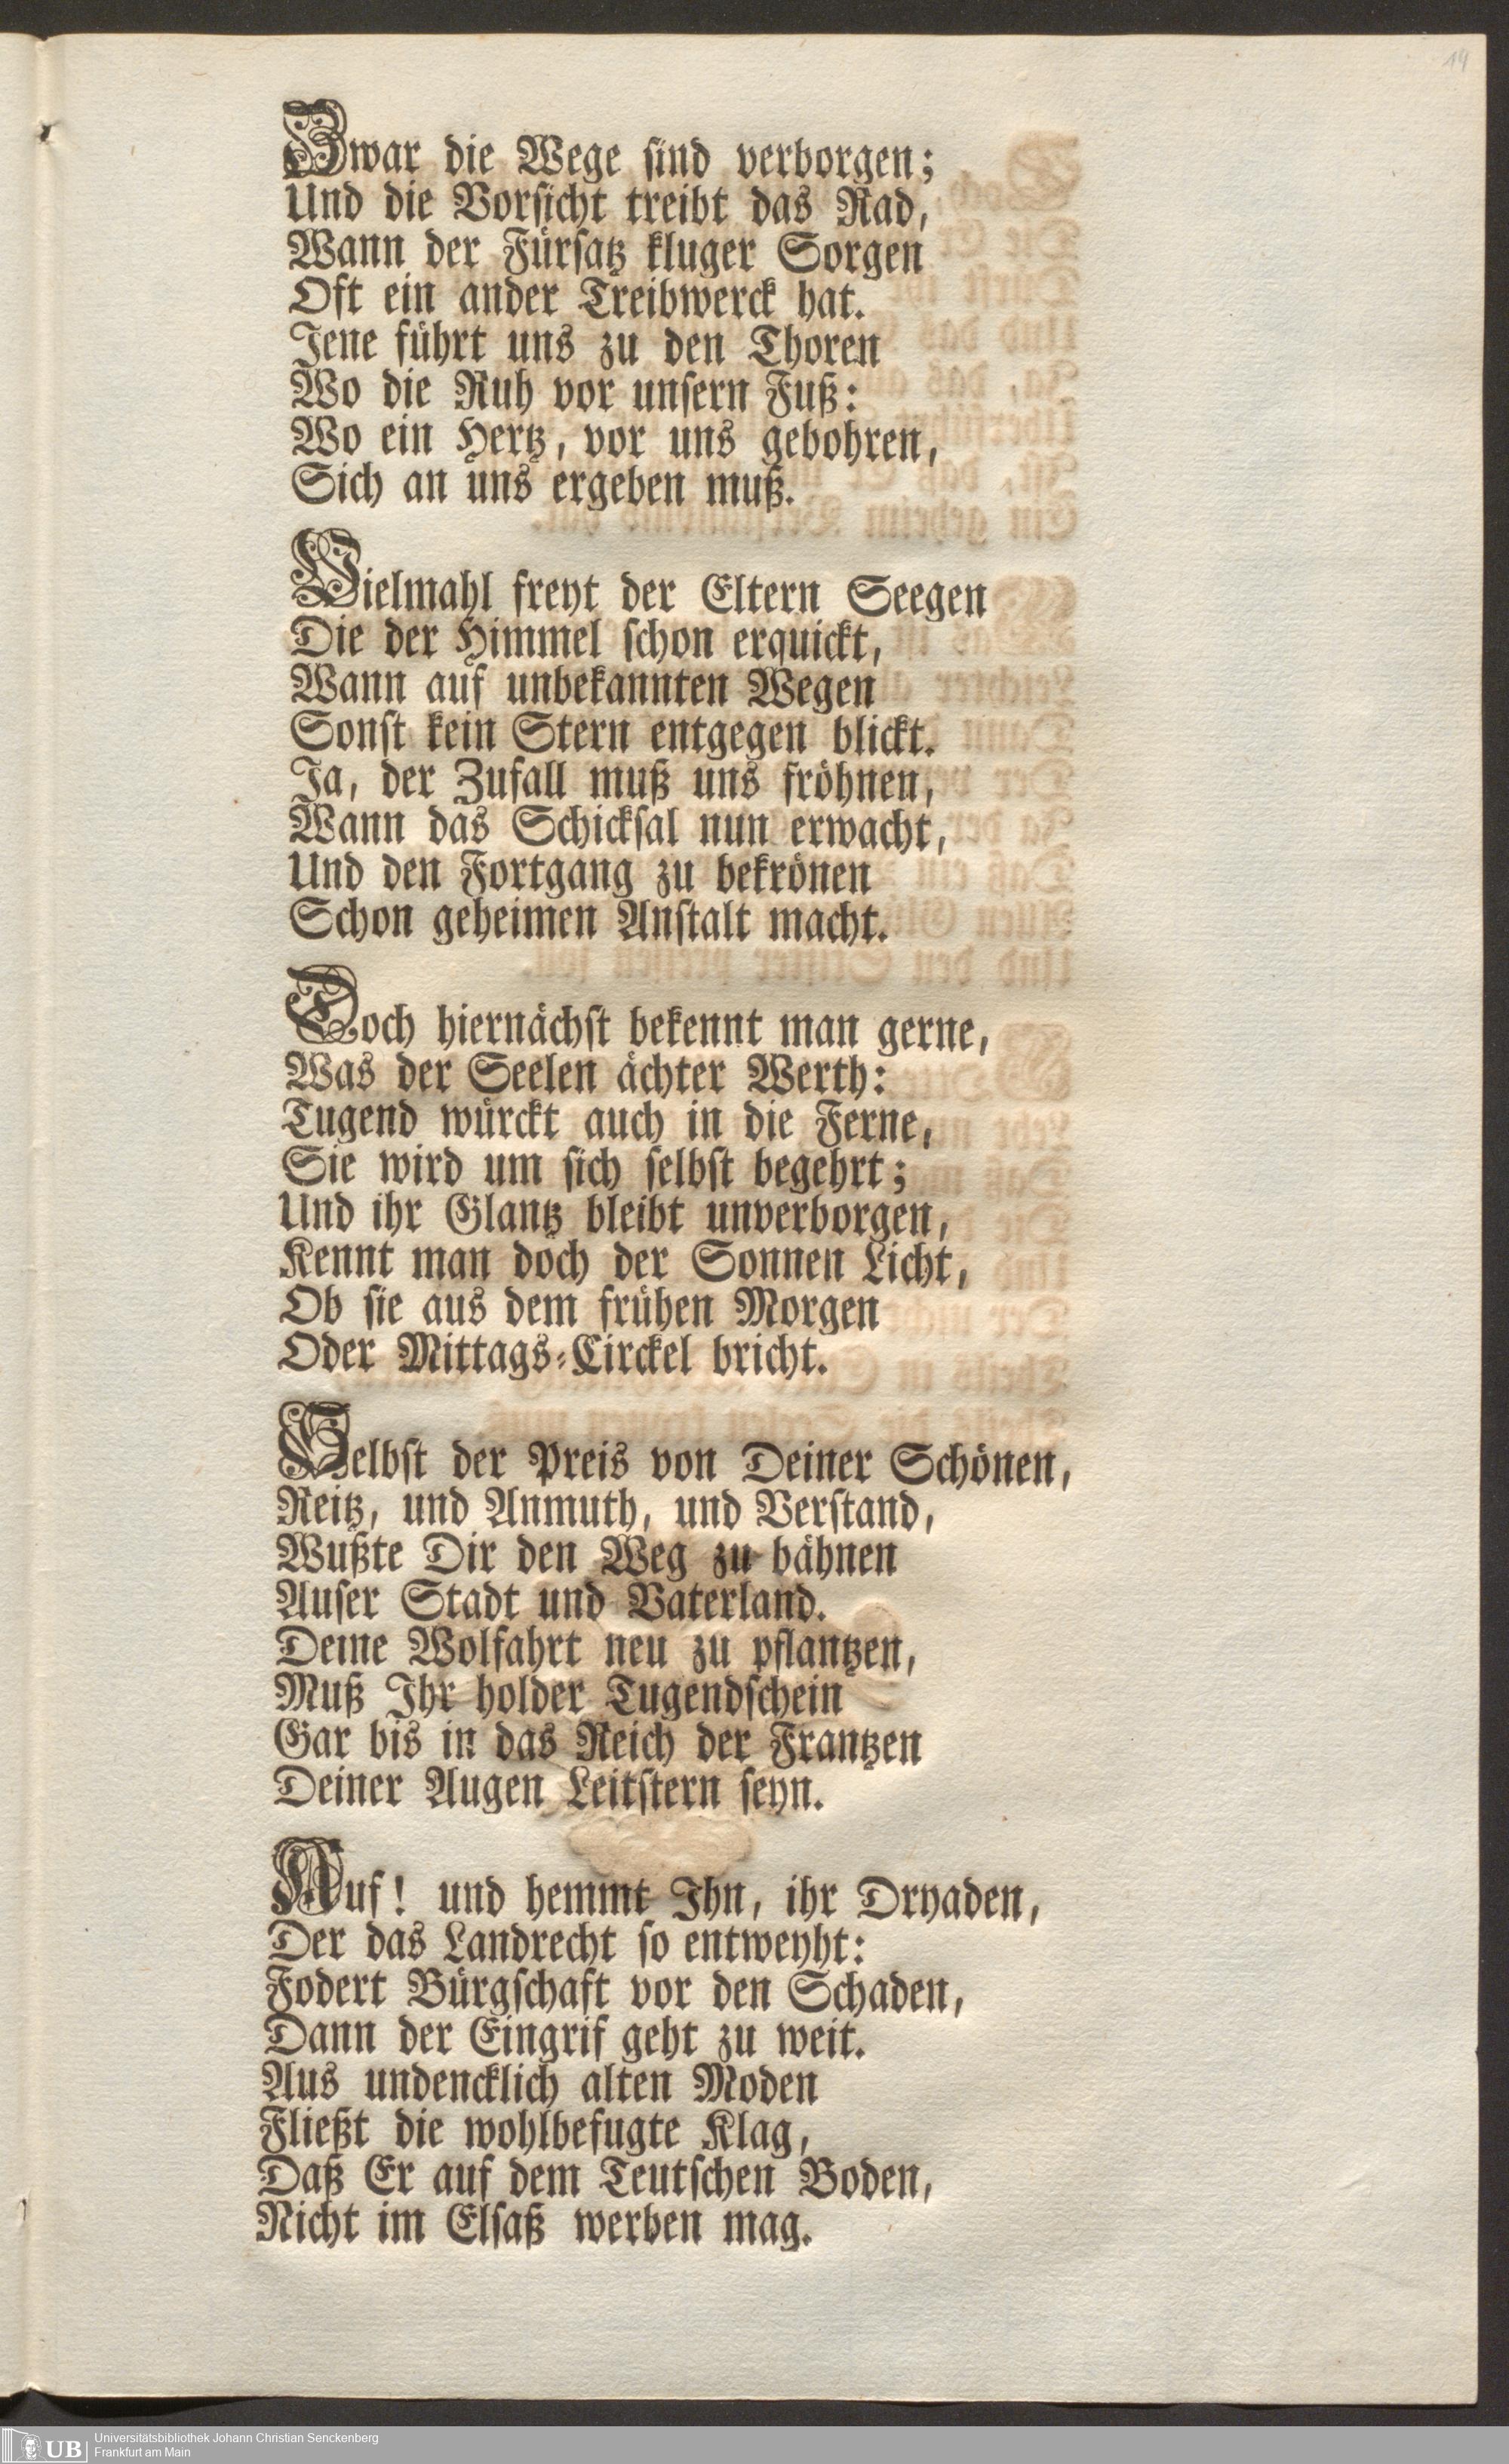 14
Zwar die Wege sind verborgen;
Und die Vorsicht treibt das Rad,
Wann der Fürsatz kluger Sorgen
Oft ein ander Treibwerck hat.
Jene führt uns zu den Thoren
Wo die Ruh vor unsern Fuß:
Wo ein Hertz, vor uns gebohren,
Sich an uns ergeben muß.
Vielmahl freyt der Eltern Seegen
Die der Himmel schon erquickt,
Wann auf unbekannten Wegen
Sonst kein Stern entgegen blickt.
Ja, der Zufall muß uns fröhnen,
Wann das Schicksal nun erwacht,
Und den Fortgang zu bekrönen
Schon geheimen Anstalt macht.
Doch hiernächst bekennt man gerne,
Was der Seelen ächter Werth:
Tugend würckt auch in die Ferne,
Sie wird um sich selbst begehrt;
Und ihr Glantz bleibt unverborgen,
Kennt man doch der Sonnen Licht,
Ob sie aus dem frühen Morgen
Oder Mittags-Circkel bricht.
Selbst der Preis von Deiner Schönen,
Reitz, und Anmuth, und Verstand,
Wußte Dir den Weg zu bähnen
Auser Stadt und Vaterland.
Deine Wolfahrt neu zu pflantzen,
Muß Ihr holder Tugendschein
Gar bis in das Reich der Frantzen
Deiner Augen Leitstern seyn.
Auf! und hemmt Ihn, ihr Dryaden,
Der das Landrecht so entweyht:
Fodert Bürgschaft vor den Schaden,
Dann der Eingrif geht zu weit.
Aus undencklich alten Moden
Fließt die wohlbefugte Klag,
Daß Er auf dem Teutschen Boden,
Nicht im Elsaß werben mag.
UB
Universitätsbibliothek Johann Christian Senckenberg
Frankfurt am Main